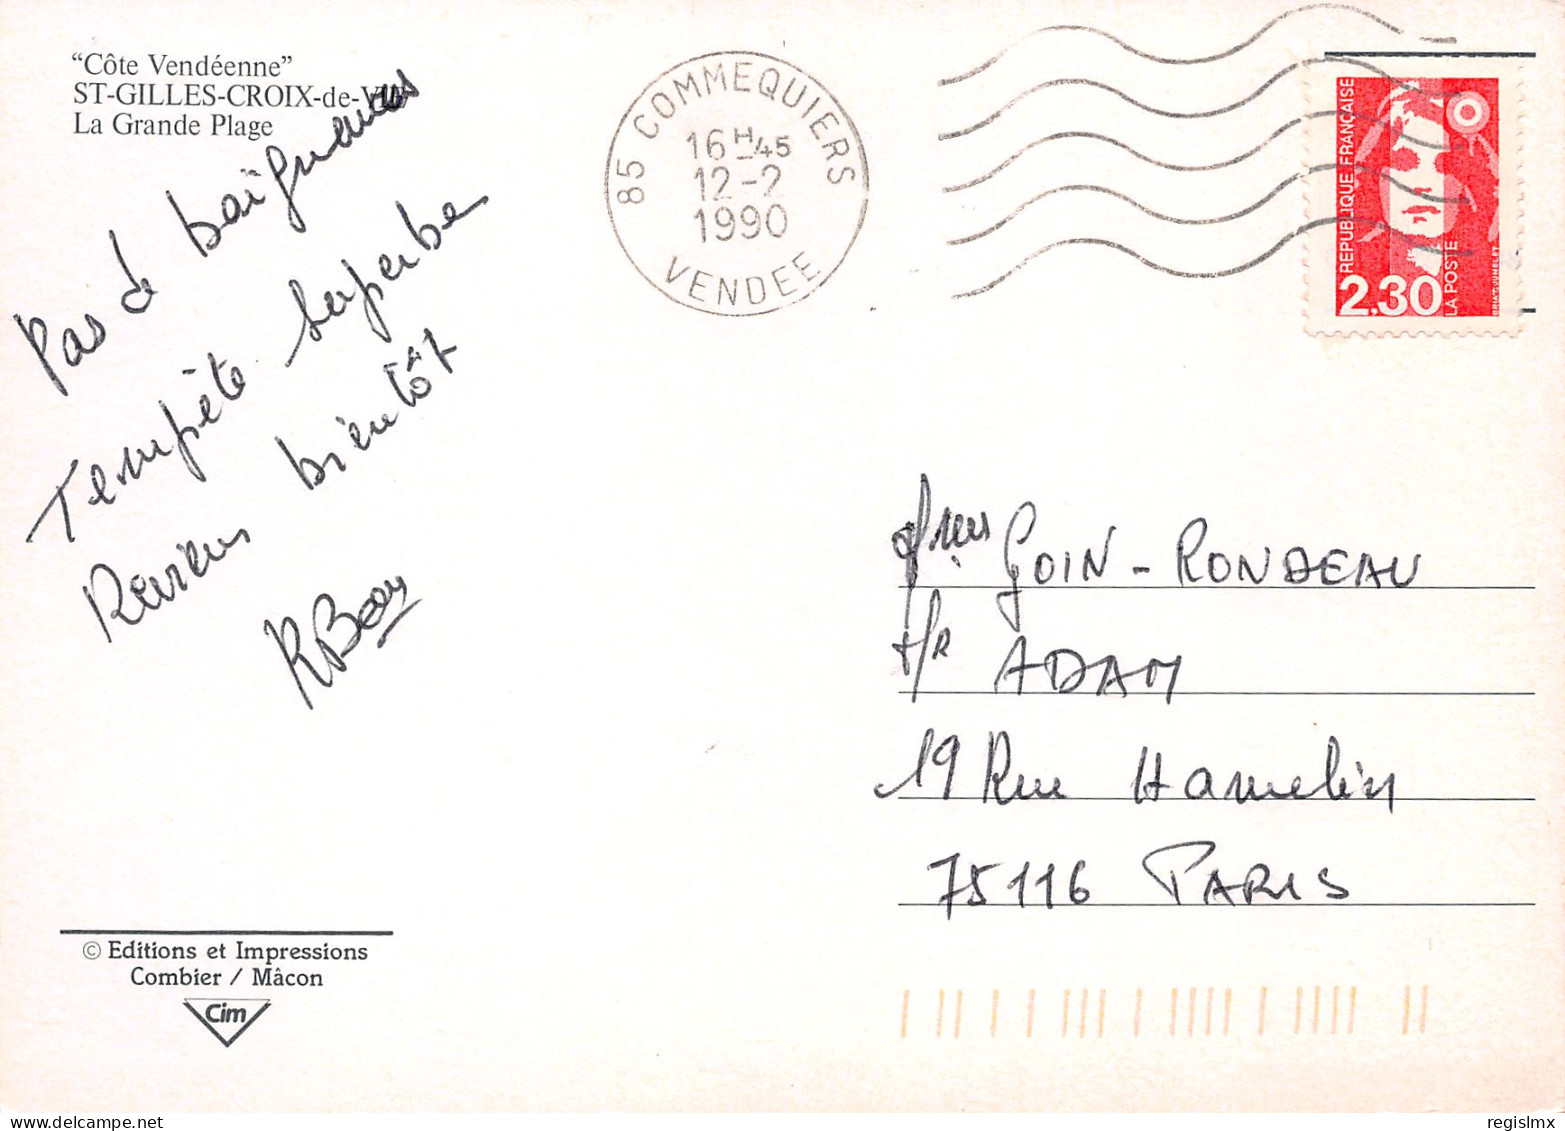 “Côte Vendéenne”
ST-GILLES-CROIX-de-VIE
La Grande Plage
Pas de baignades
Tempête superbe
Reviens bientôt
85 COMMEQUIERS
16H45
12-2
1990
VENDEE
REPUBLIQUE FRANÇAISE
LA POSTE
2,30
GOIN-RONDEAU
ADAM
19 Rue Hamelin
75116 PARIS
© Editions et Impressions
Combier / Mâcon
Cim
regislmx